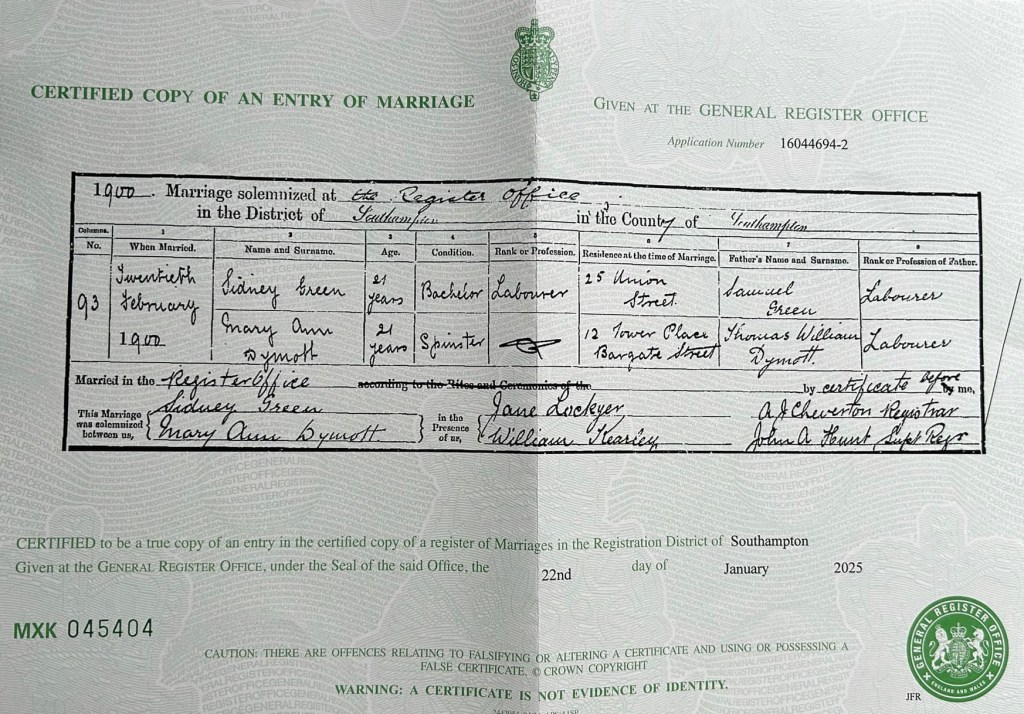 CERTIFIED COPY OF AN ENTRY OF MARRIAGE
GIVEN AT THE GENERAL REGISTER OFFICE
Application Number 16044694-2
1900. Marriage solemnized at the Register Office
in the District of Southampton in the County of Southampton
Columns. 1 2 3 4 5 6 7 8
No. When Married. Name and Surname. Age. Condition. Rank or Profession. Residence at the time of Marriage. Father's Name and Surname. Rank or Profession of Father.
93 Twentieth February 1900
Sidney Green 21 years Bachelor Labourer 25 Union Street. Samuel Green Labourer
Mary Ann Dymott 21 years Spinster 12 Tower Place Bargate Street Thomas William Dymott. Labourer
Married in the Register Office according to the Rites and Ceremonies of the by certificate before by me,
This Marriage was solemnized between us,
Sidney Green
Mary Ann Dymott
in the Presence of us,
Jane Lockyer
William Kearley
A J Cheverton Registrar
John A Hunt Supt Regr
CERTIFIED to be a true copy of an entry in the certified copy of a register of Marriages in the Registration District of Southampton
Given at the GENERAL REGISTER OFFICE, under the Seal of the said Office, the 22nd day of January 2025
MXK 045404
CAUTION: THERE ARE OFFENCES RELATING TO FALSIFYING OR ALTERING A CERTIFICATE AND USING OR POSSESSING A
FALSE CERTIFICATE. © CROWN COPYRIGHT
WARNING: A CERTIFICATE IS NOT EVIDENCE OF IDENTITY.
GENERAL REGISTER OFFICE
ENGLAND AND WALES
JFR